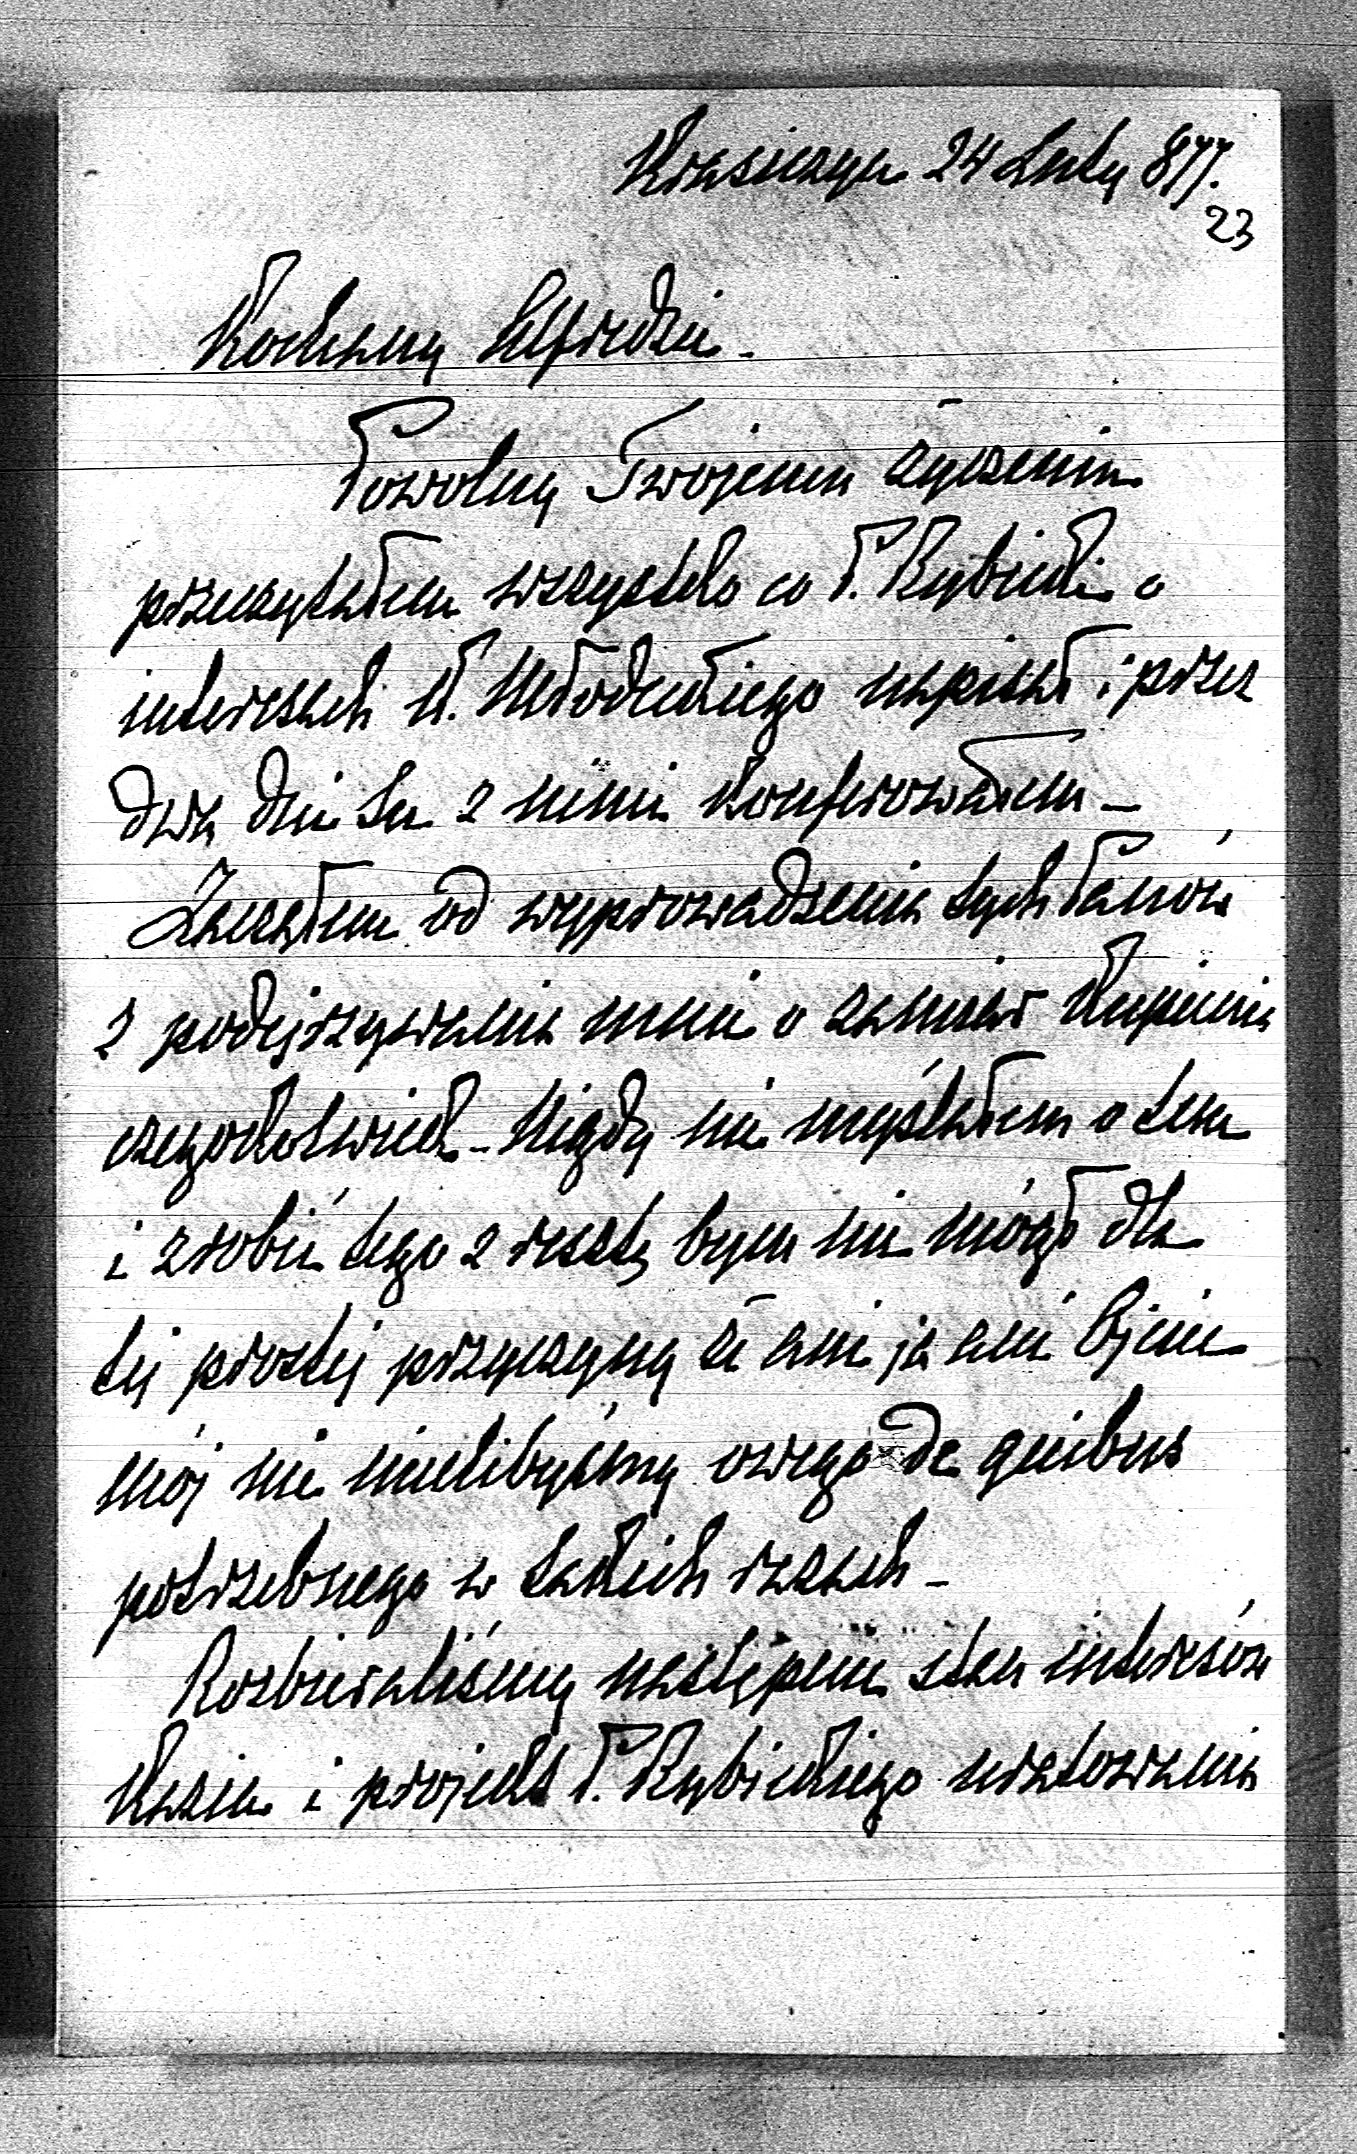 Krasiczyn 24 Luty 877.
23
Kochany Alfredzie.
Powolny Twojemu życzeniu
przeczytałem wszystko co P. Rybicki o
interesach K. Młodeckiego napisał i przez
dwa dni tu z nimi konferowałem –
Zacząłem od wyprowadzenia tych Panów
z podejrzywania mnie o zamiar kupienia
czegokolwiek – Nigdy nie myślałem o tem
i zrobić tego z resztą bym nie mógł dla
tej prostej przyczyny że ani ja ani Ojciec
mój nie mielibyśmy owego de quibus
potrzebnego w takich razach –
Rozbieraliśmy następnie stan interesów
Kazia i projekt P. Rybickiego uratowania